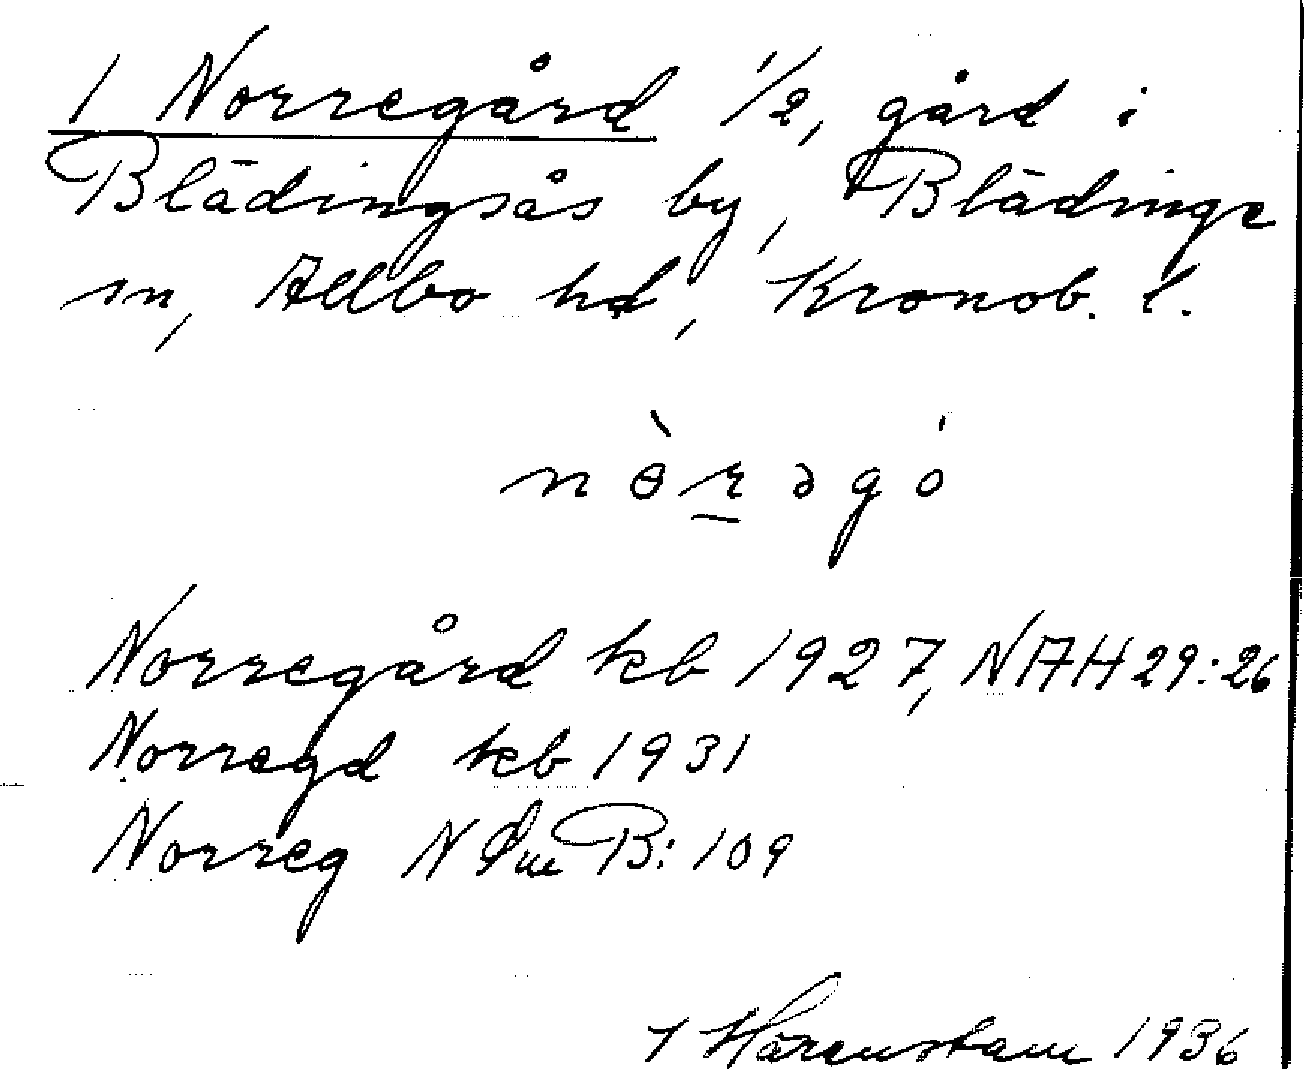 1 Norregård 1/2, gård i
Blädingsås by, Blädinge
sn, Allbo hd, Kronob. l.
nɵ̀rəgó
Norregård kb 1927, NAH 29:26
Norregd kb 1931
Norreg N B: 109
Härenstam 1936